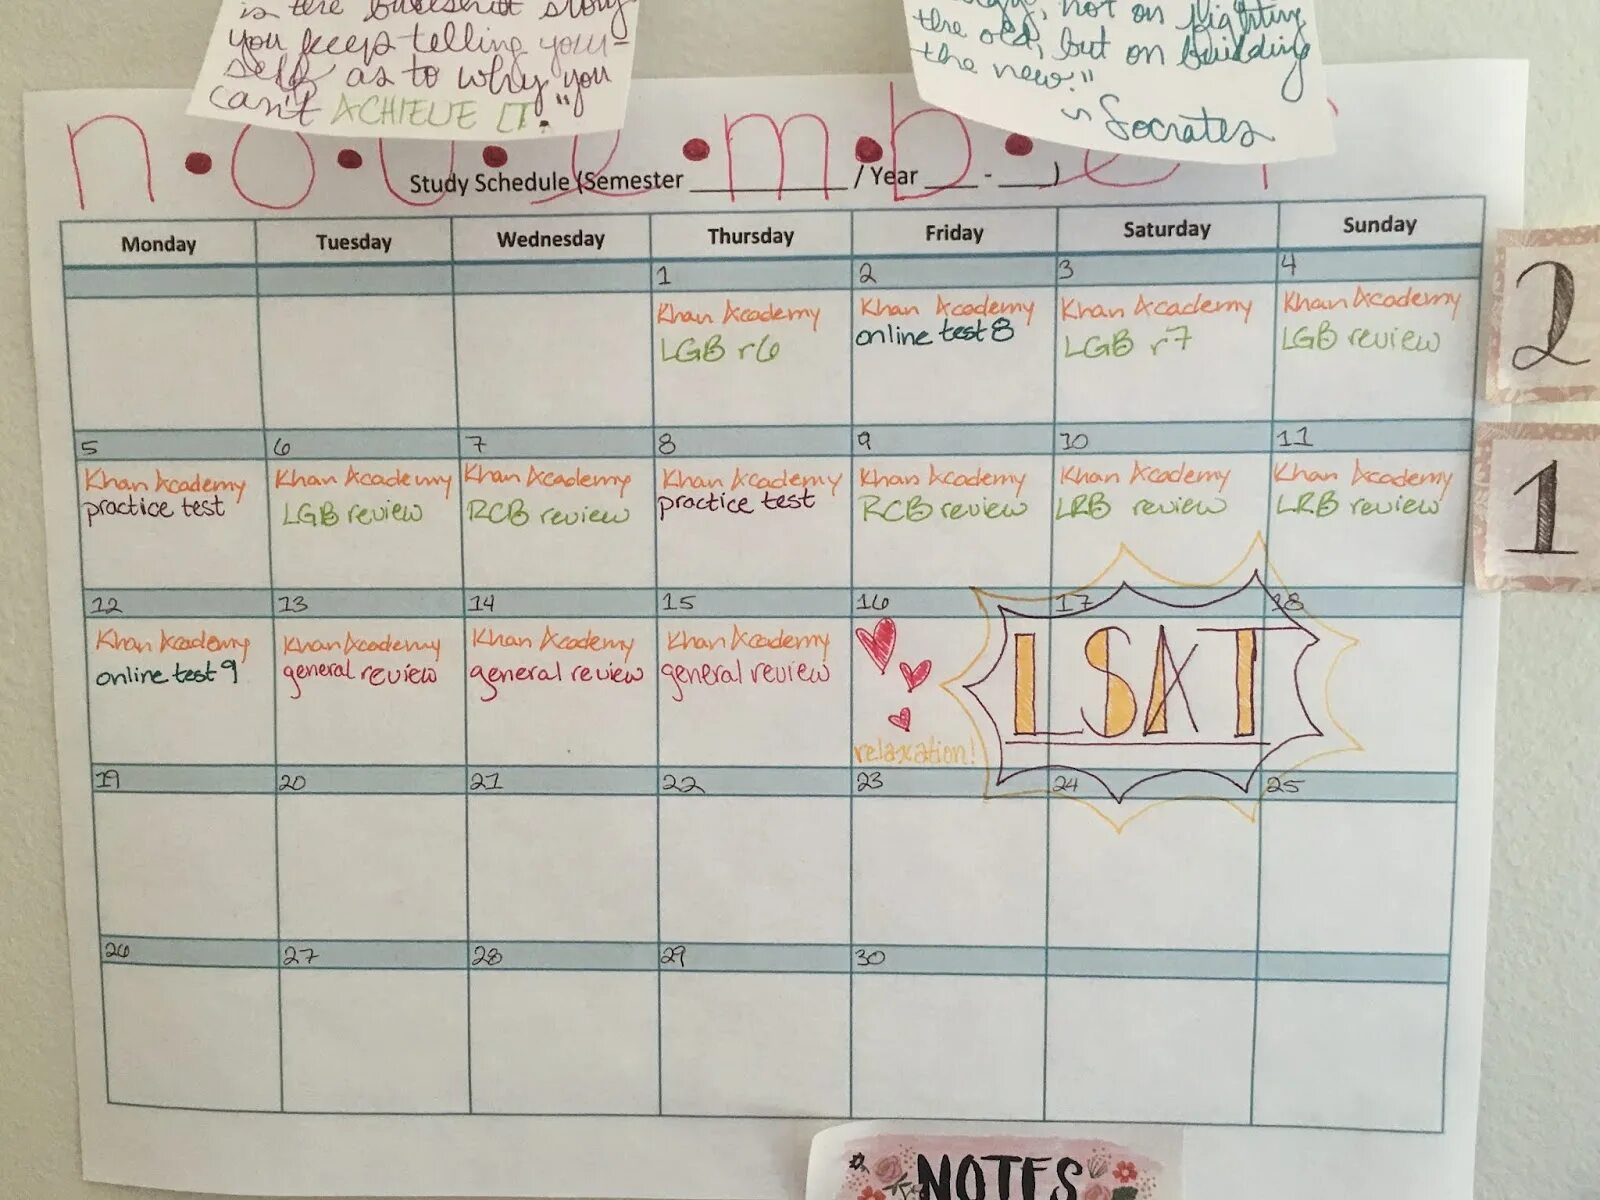 is the bullshit story
you keep telling your-
self as to why you
can't ACHIEVE IT."
not on fighting
the old, but on building
the new."
~ Socrates
n•o•v•e•m•b•e•r
Study Schedule (Semester ___________ / Year ____ - ____)
Monday Tuesday Wednesday Thursday Friday Saturday Sunday
1 2 3 4
Khan Academy Khan Academy Khan Academy Khan Academy
LGB r6 online test 8 LGB r7 LGB review
2
5 6 7 8 9 10 11
Khan Academy Khan Academy Khan Academy Khan Academy Khan Academy Khan Academy Khan Academy
practice test LGB review RCB review practice test RCB review LRB review LRB review
1
12 13 14 15 16 17 18
Khan Academy Khan Academy Khan Academy Khan Academy
online test 9 general review general review general review
LSAT
relaxation!
19 20 21 22 23 24 25
26 27 28 29 30
NOTES